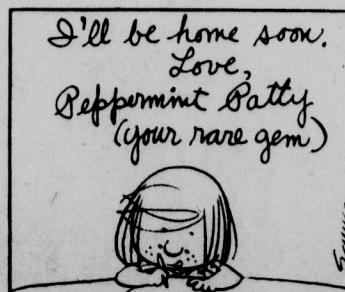 I'll be home soon.
Love,
Peppermint Patty
(your rare gem)